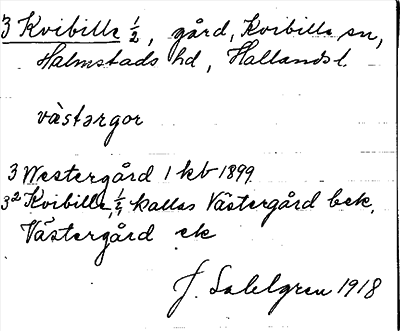 3 Kvibille ½, gård, Kvibille sn,
Halmstads hd, Hallands l.
vàstərgor
3 Westergård 1 kb 1899
3² Kvibille, ¼ kallas Västergård bek.
Västergård ek
J. Sahlgren 1918